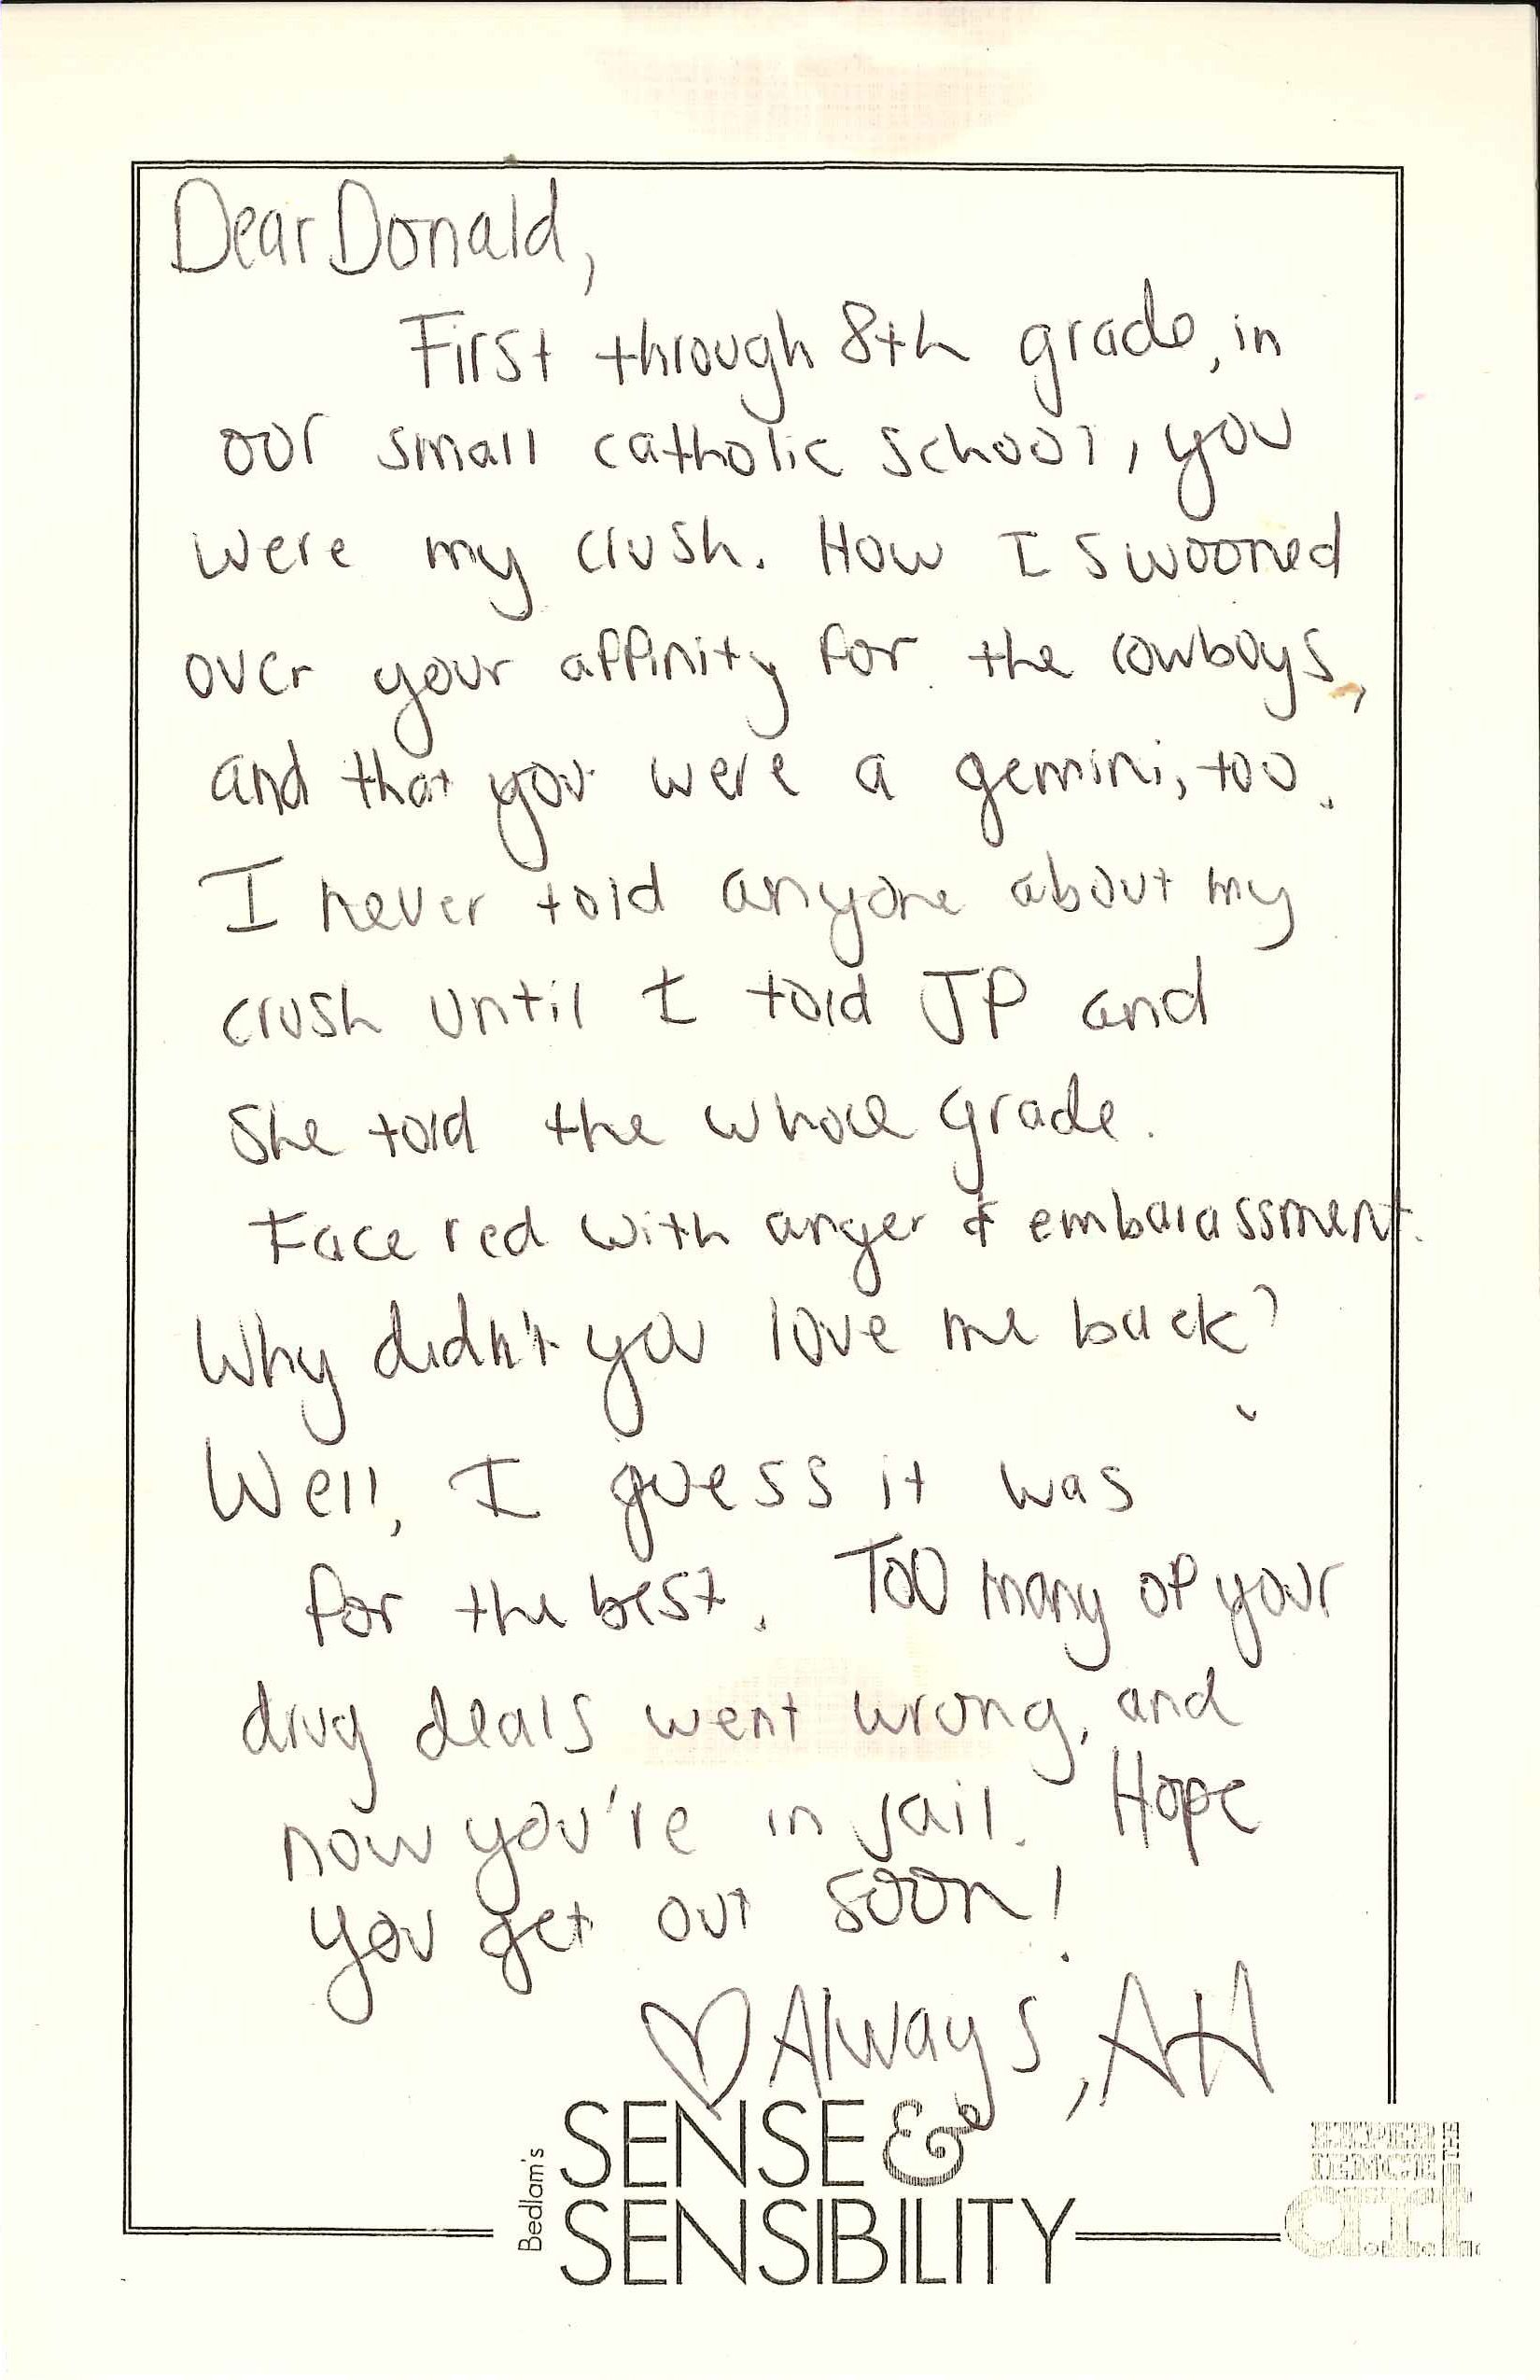 Dear Donald,
First through 8th grade, in
our small catholic school, you
were my crush. How I swooned
over your affinity for the cowboys,
and that you were a gemini, too.
I never told anyone about my
crush until I told JP and
She told the whole grade.
Face red with anger & embarassment.
Why didn't you love me back?
Well, I guess it was
for the best. Too many of your
drug deals went wrong, and
now you're in jail. Hope
you get out soon!
♡ Always, AH
Bedlam's
SENSE &
SENSIBILITY
EXPER
IENCE
THE
art